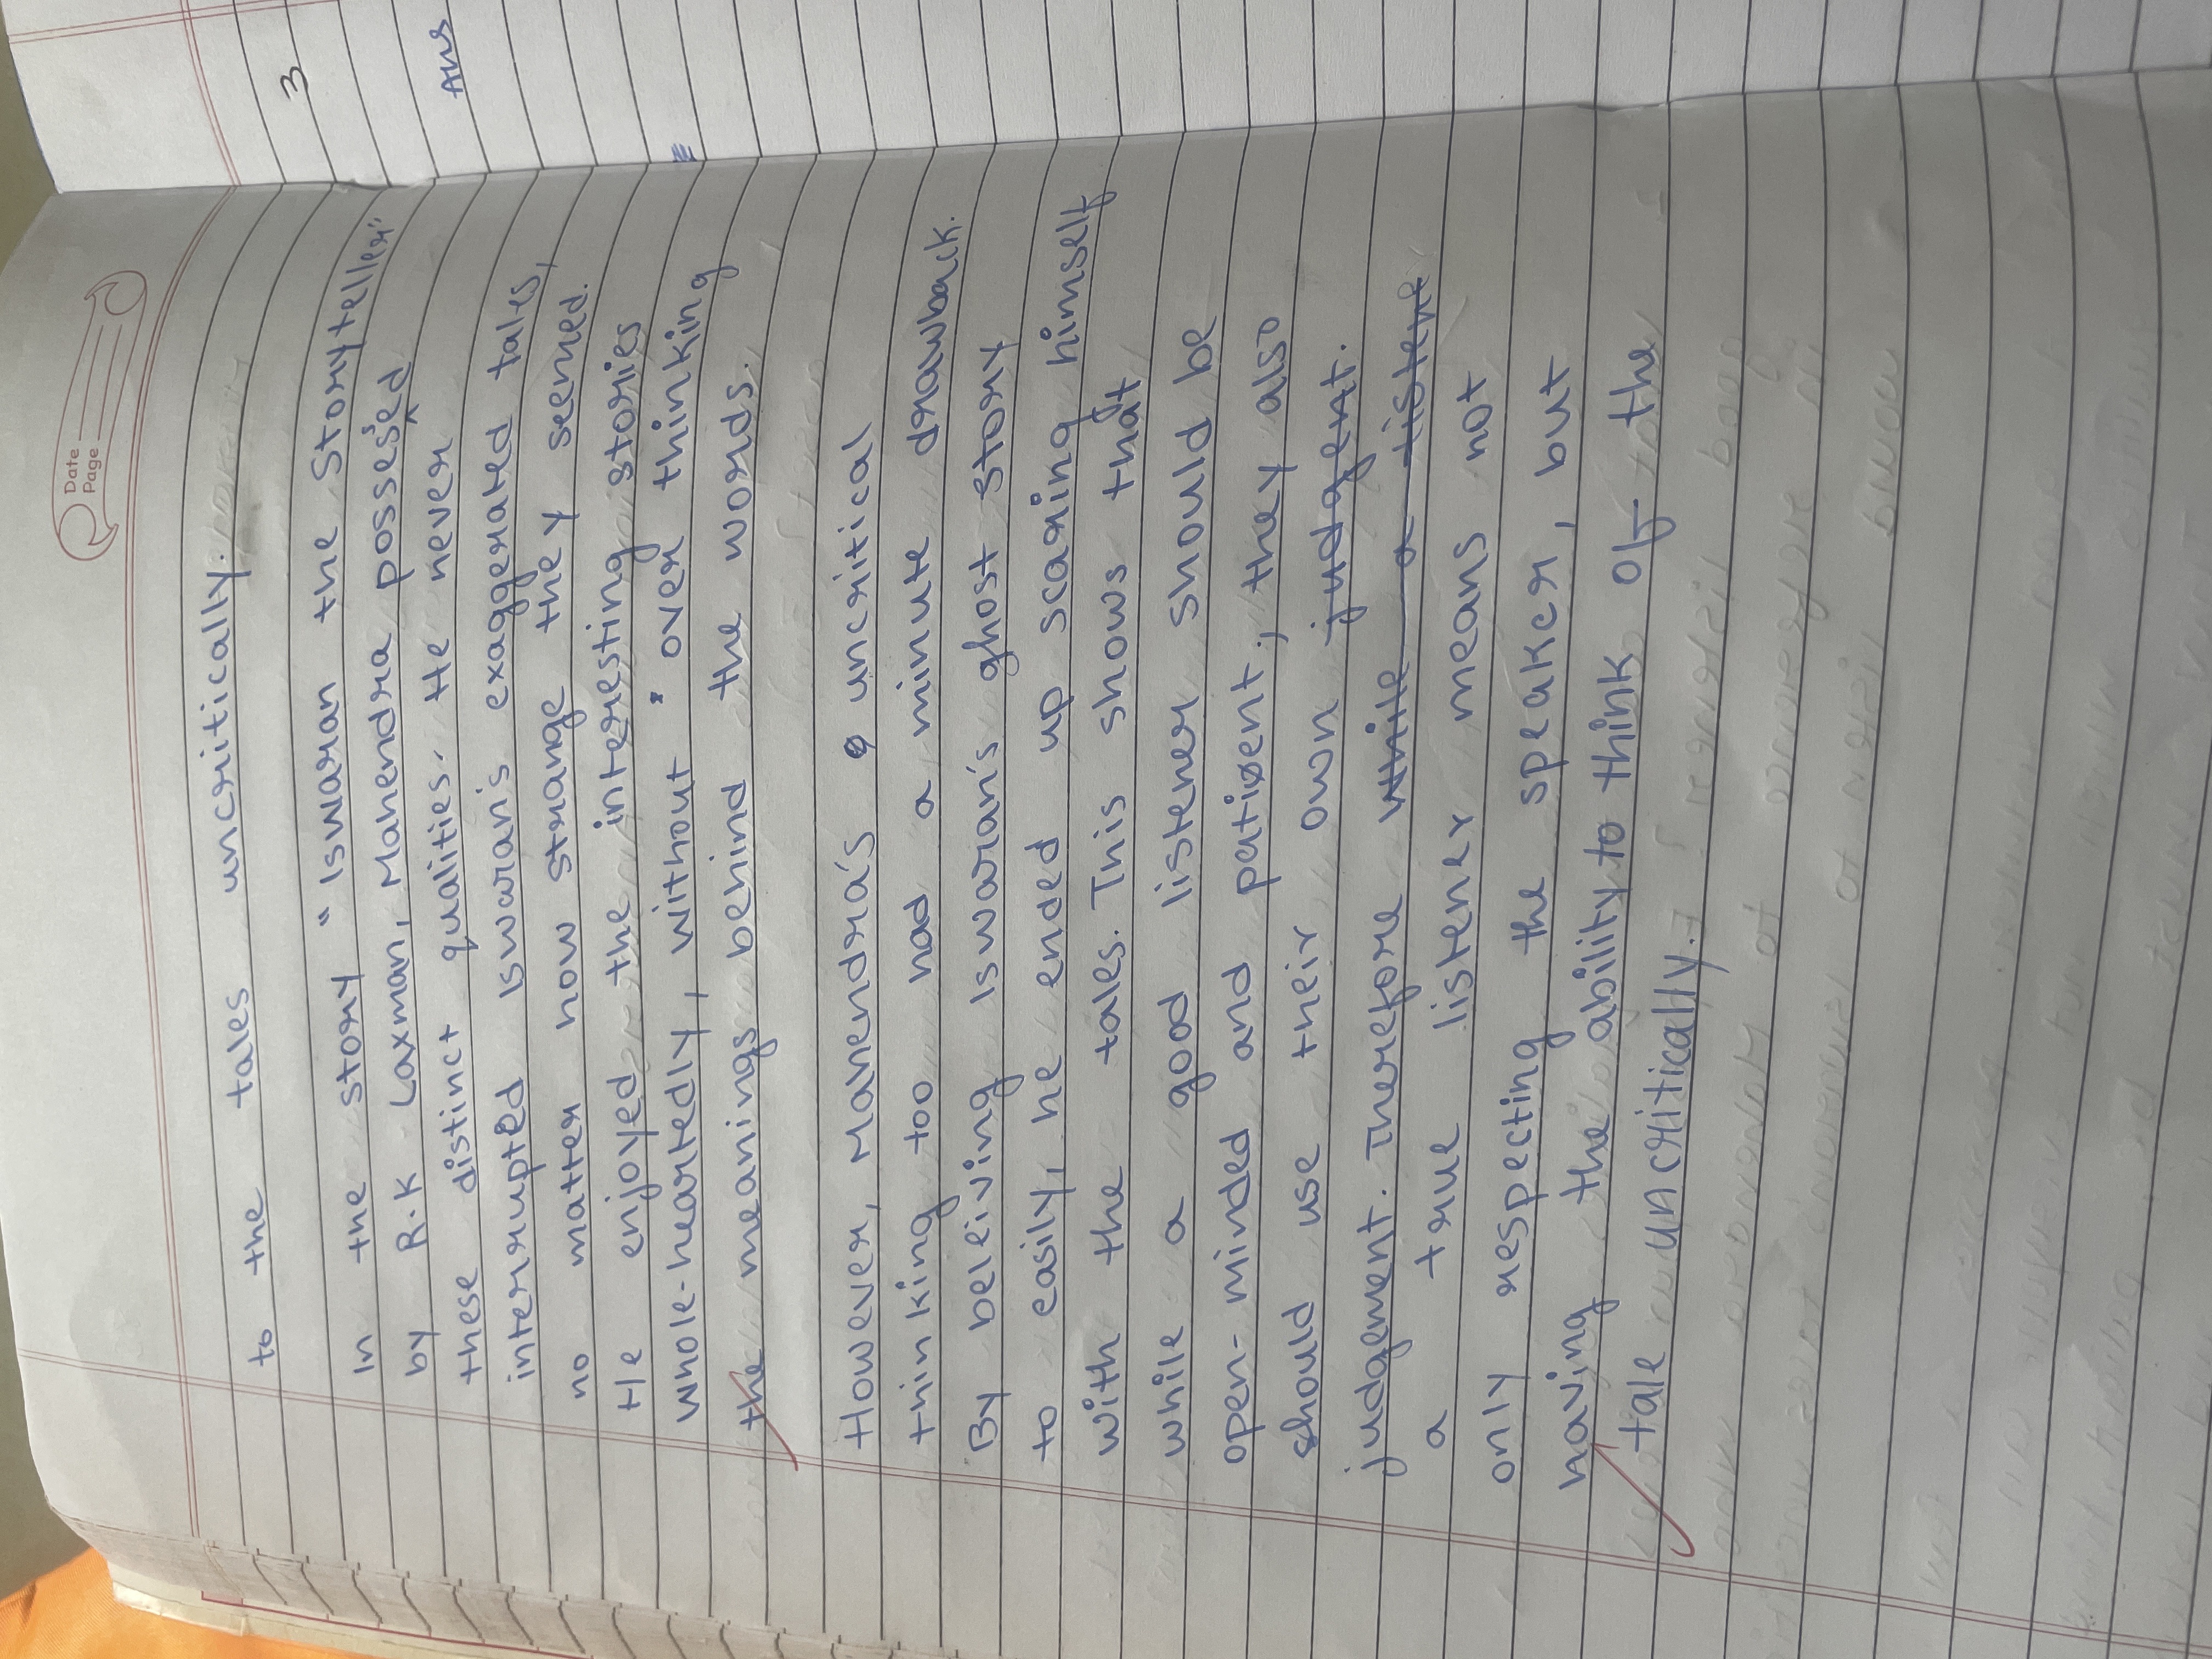 Date
Page
to the tales uncritically.
In the story "Iswaran the Storyteller"
by R.K Laxman, Mahendra possessed
these distinct qualities. He never
interrupted Iswaran's exaggerated tales,
no matter how strange they seemed.
He enjoyed the interesting stories
whole-heartedly, without over thinking
the meanings behind the words.
However, Mahendra's uncritical
thinking too had a minute drawback.
By beleiving Iswaran's ghost story
to easily, he ended up scaring himself
with the tales. This shows that
while a good listener should be
open-minded and patient, they also
should use their own judgent.
judgement. Therefore while a listener
a true listener means not
only respecting the speaker, but
having the ability to think of the
tale uncritically.
3
Ans